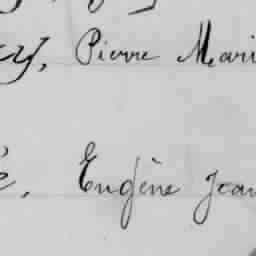 Pierre Mari
Eugène Jean